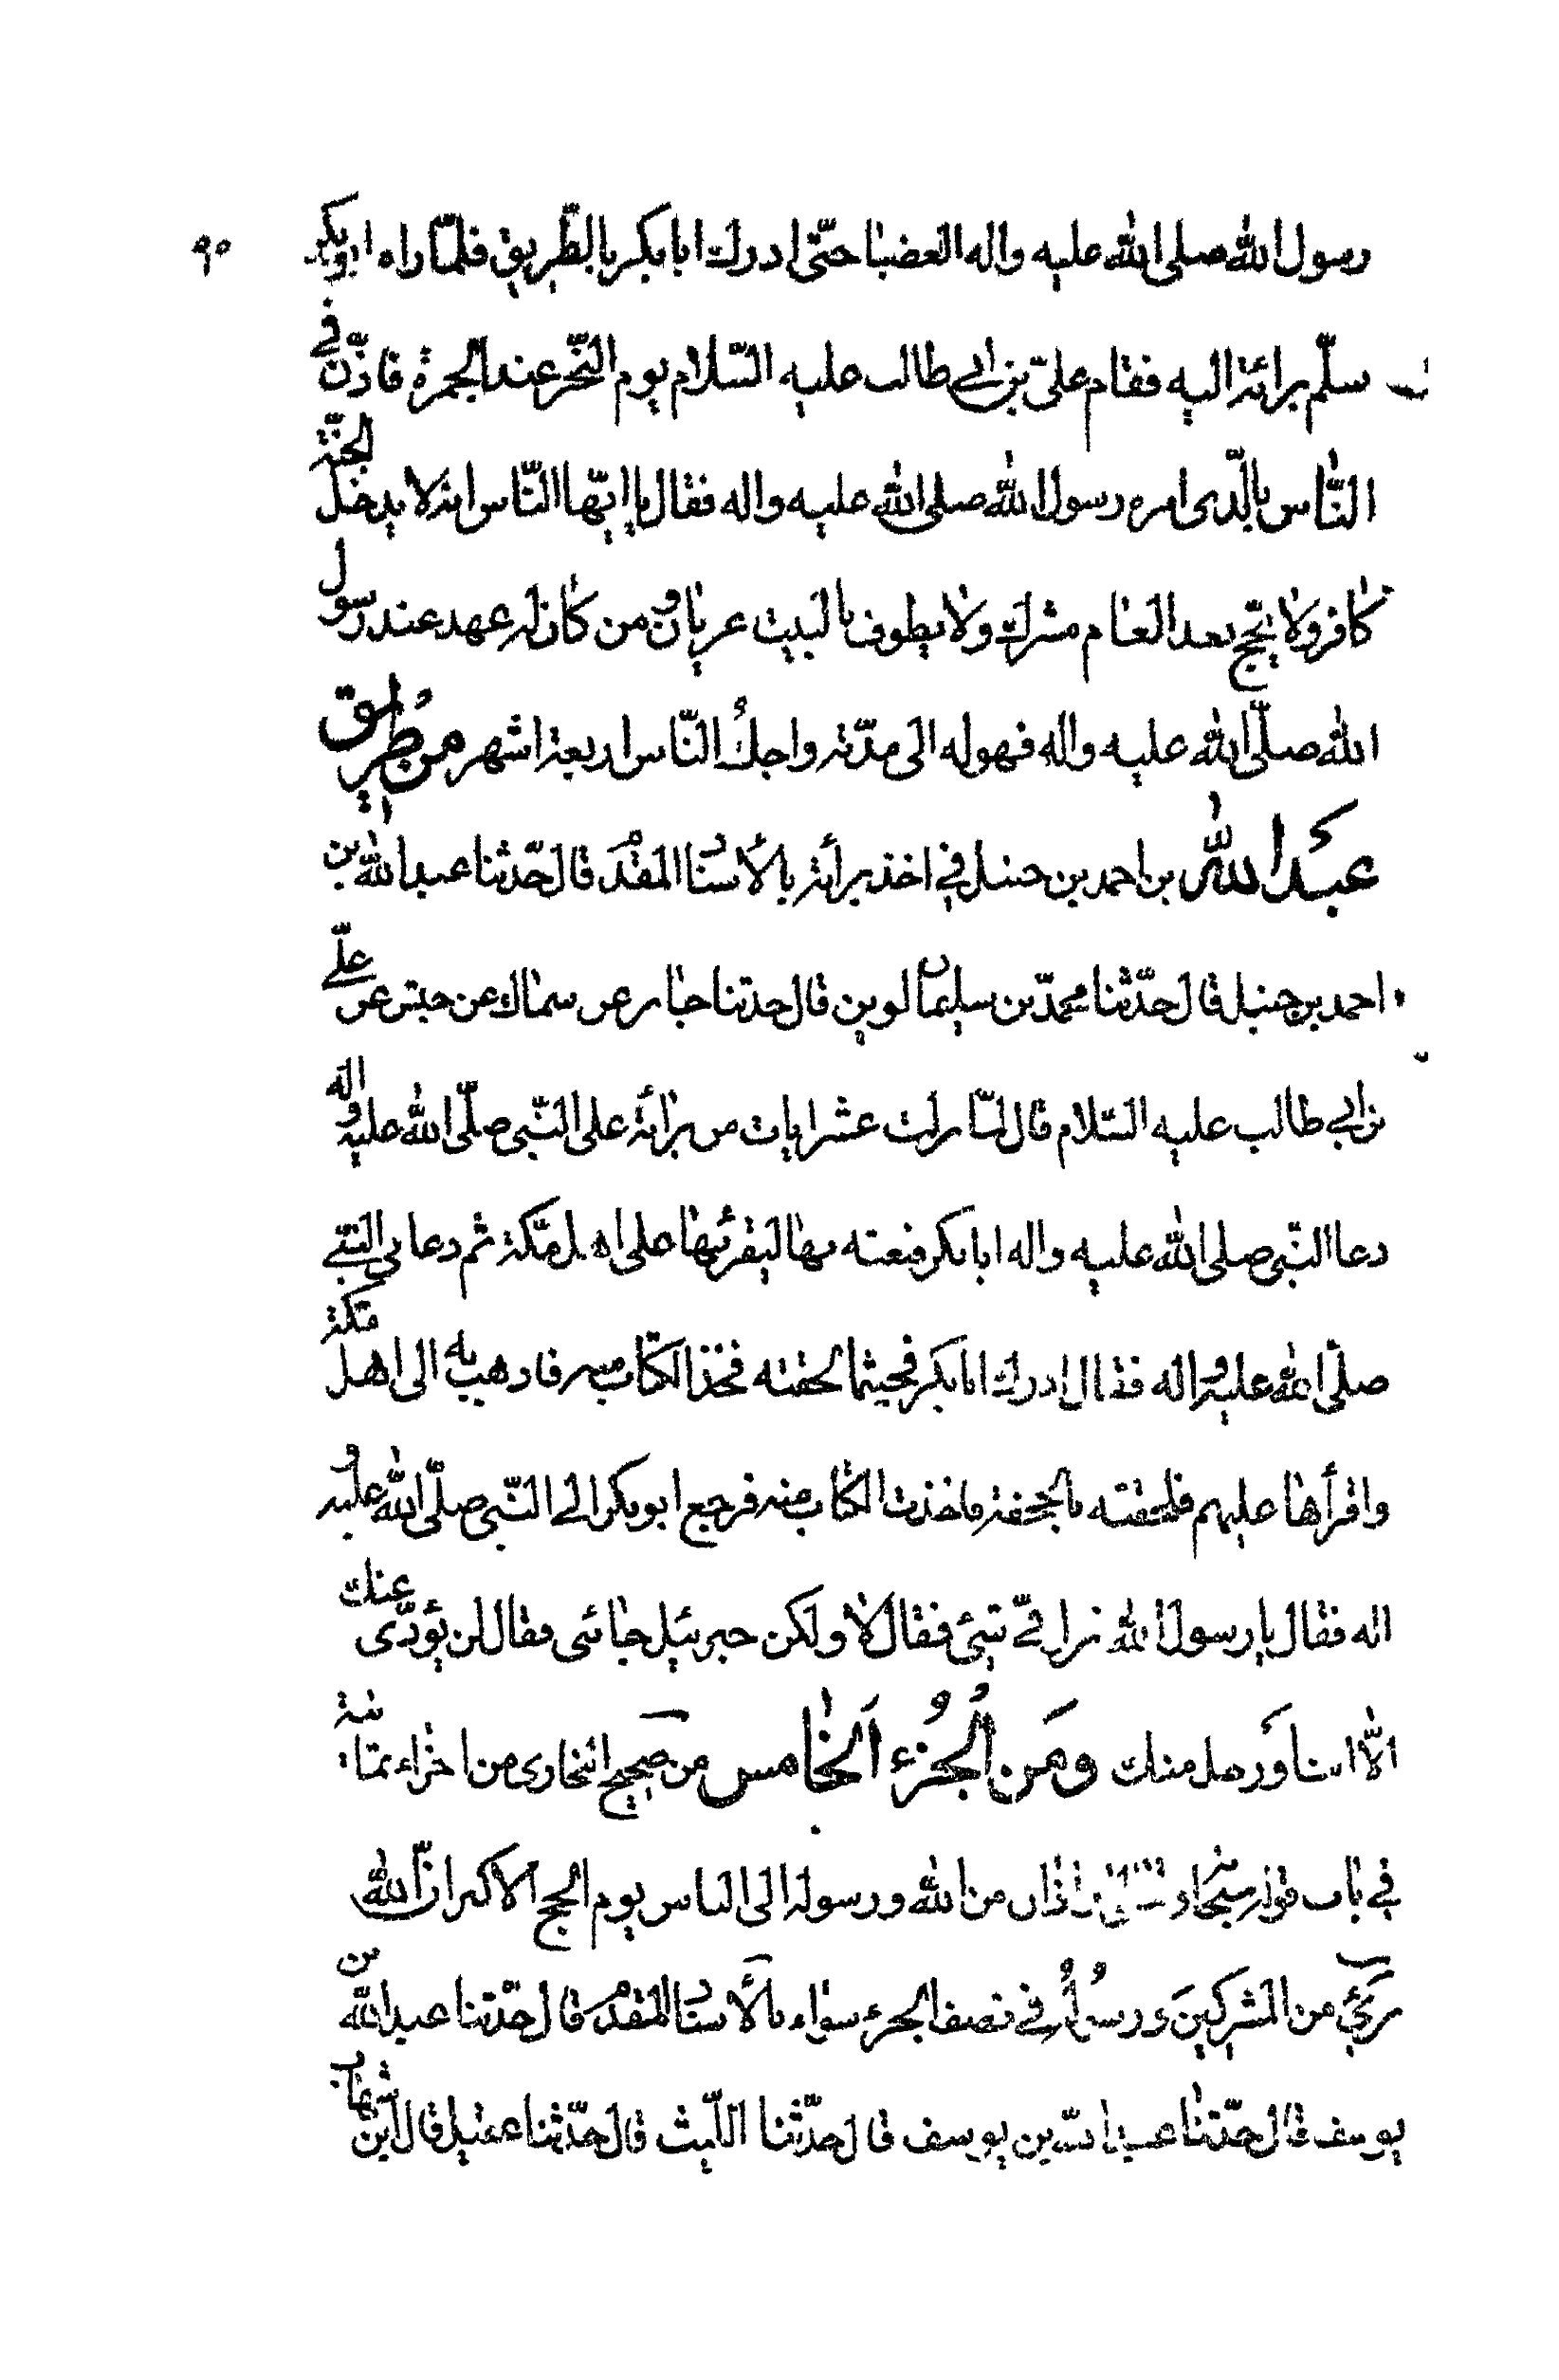 ٩٥
رسول الله صلى الله عليه واله العضبا حتّى ادرك ابا بكر بالطّريق فلمّا راه ابو بكر
سلّم برائة اليه فقام علىّ بن ابي طالب عليه السّلام يوم النّحر عند الجمرة فاذّن في
النّاس بالّذى امره رسول الله صلى الله عليه واله فقال يا ايّها النّاس انه لا يدخل الجنّة
كافر ولا يحّج بعد العام مشرك ولا يطوف بالبيت عريان ومن كان له عهد عند رسول
الله صلّى الله عليه واله فهو له الى مدّته واجل النّاس اربعة اشهر من طريق
عبد الله بن احمد بن حنبل في اخذ برائة بالأسناد المقدم قال حدّثنا عبد الله بن
احمد بن حنبل قال حدّثنا محمّد بن سليمان لوين قال حدثنا جابر عن سماك عن حبش عن علي
بن ابي طالب عليه السّلام قال لمّا نزلت عشر ايات من برائة على النّبى صلّى الله عليه واله
دعا النّبى صلى الله عليه واله ابا بكر فبعثه بها ليقرئها على اهل مكّة ثم دعا بي النّبي
صلّى الله عليه واله فقال ادرك ابا بكر فحيثما لحقته فخذ الكتاب منه فاذهب به الى اهل مكة
واقرأها عليهم فلحقته بالجحفة فاخذت الكتاب منه فرجع ابو بكر الى النّبى صلّى الله عليه و
اله فقال يا رسول الله نزل فىّ شئ فقال لا ولكن جبرئيل جائنى فقال لن يؤدّى عنك
الّا انت او رجل منك ومن الجزء الخامس من صحيح البخارى من اجزاء ثمانية
في باب واذان من الله ورسوله الى الناس يوم الحج الاكبر انّ الله
برئ من المشركين ورسوله في نصف الجزء سواء بالأسناد المقدم قال حدّثنا عبد الله بن
يوسف قال حدّثنا عبد الله بن يوسف قال حدّثنا اللّيث قال حدّثنا عقيل قال ابن شهاب